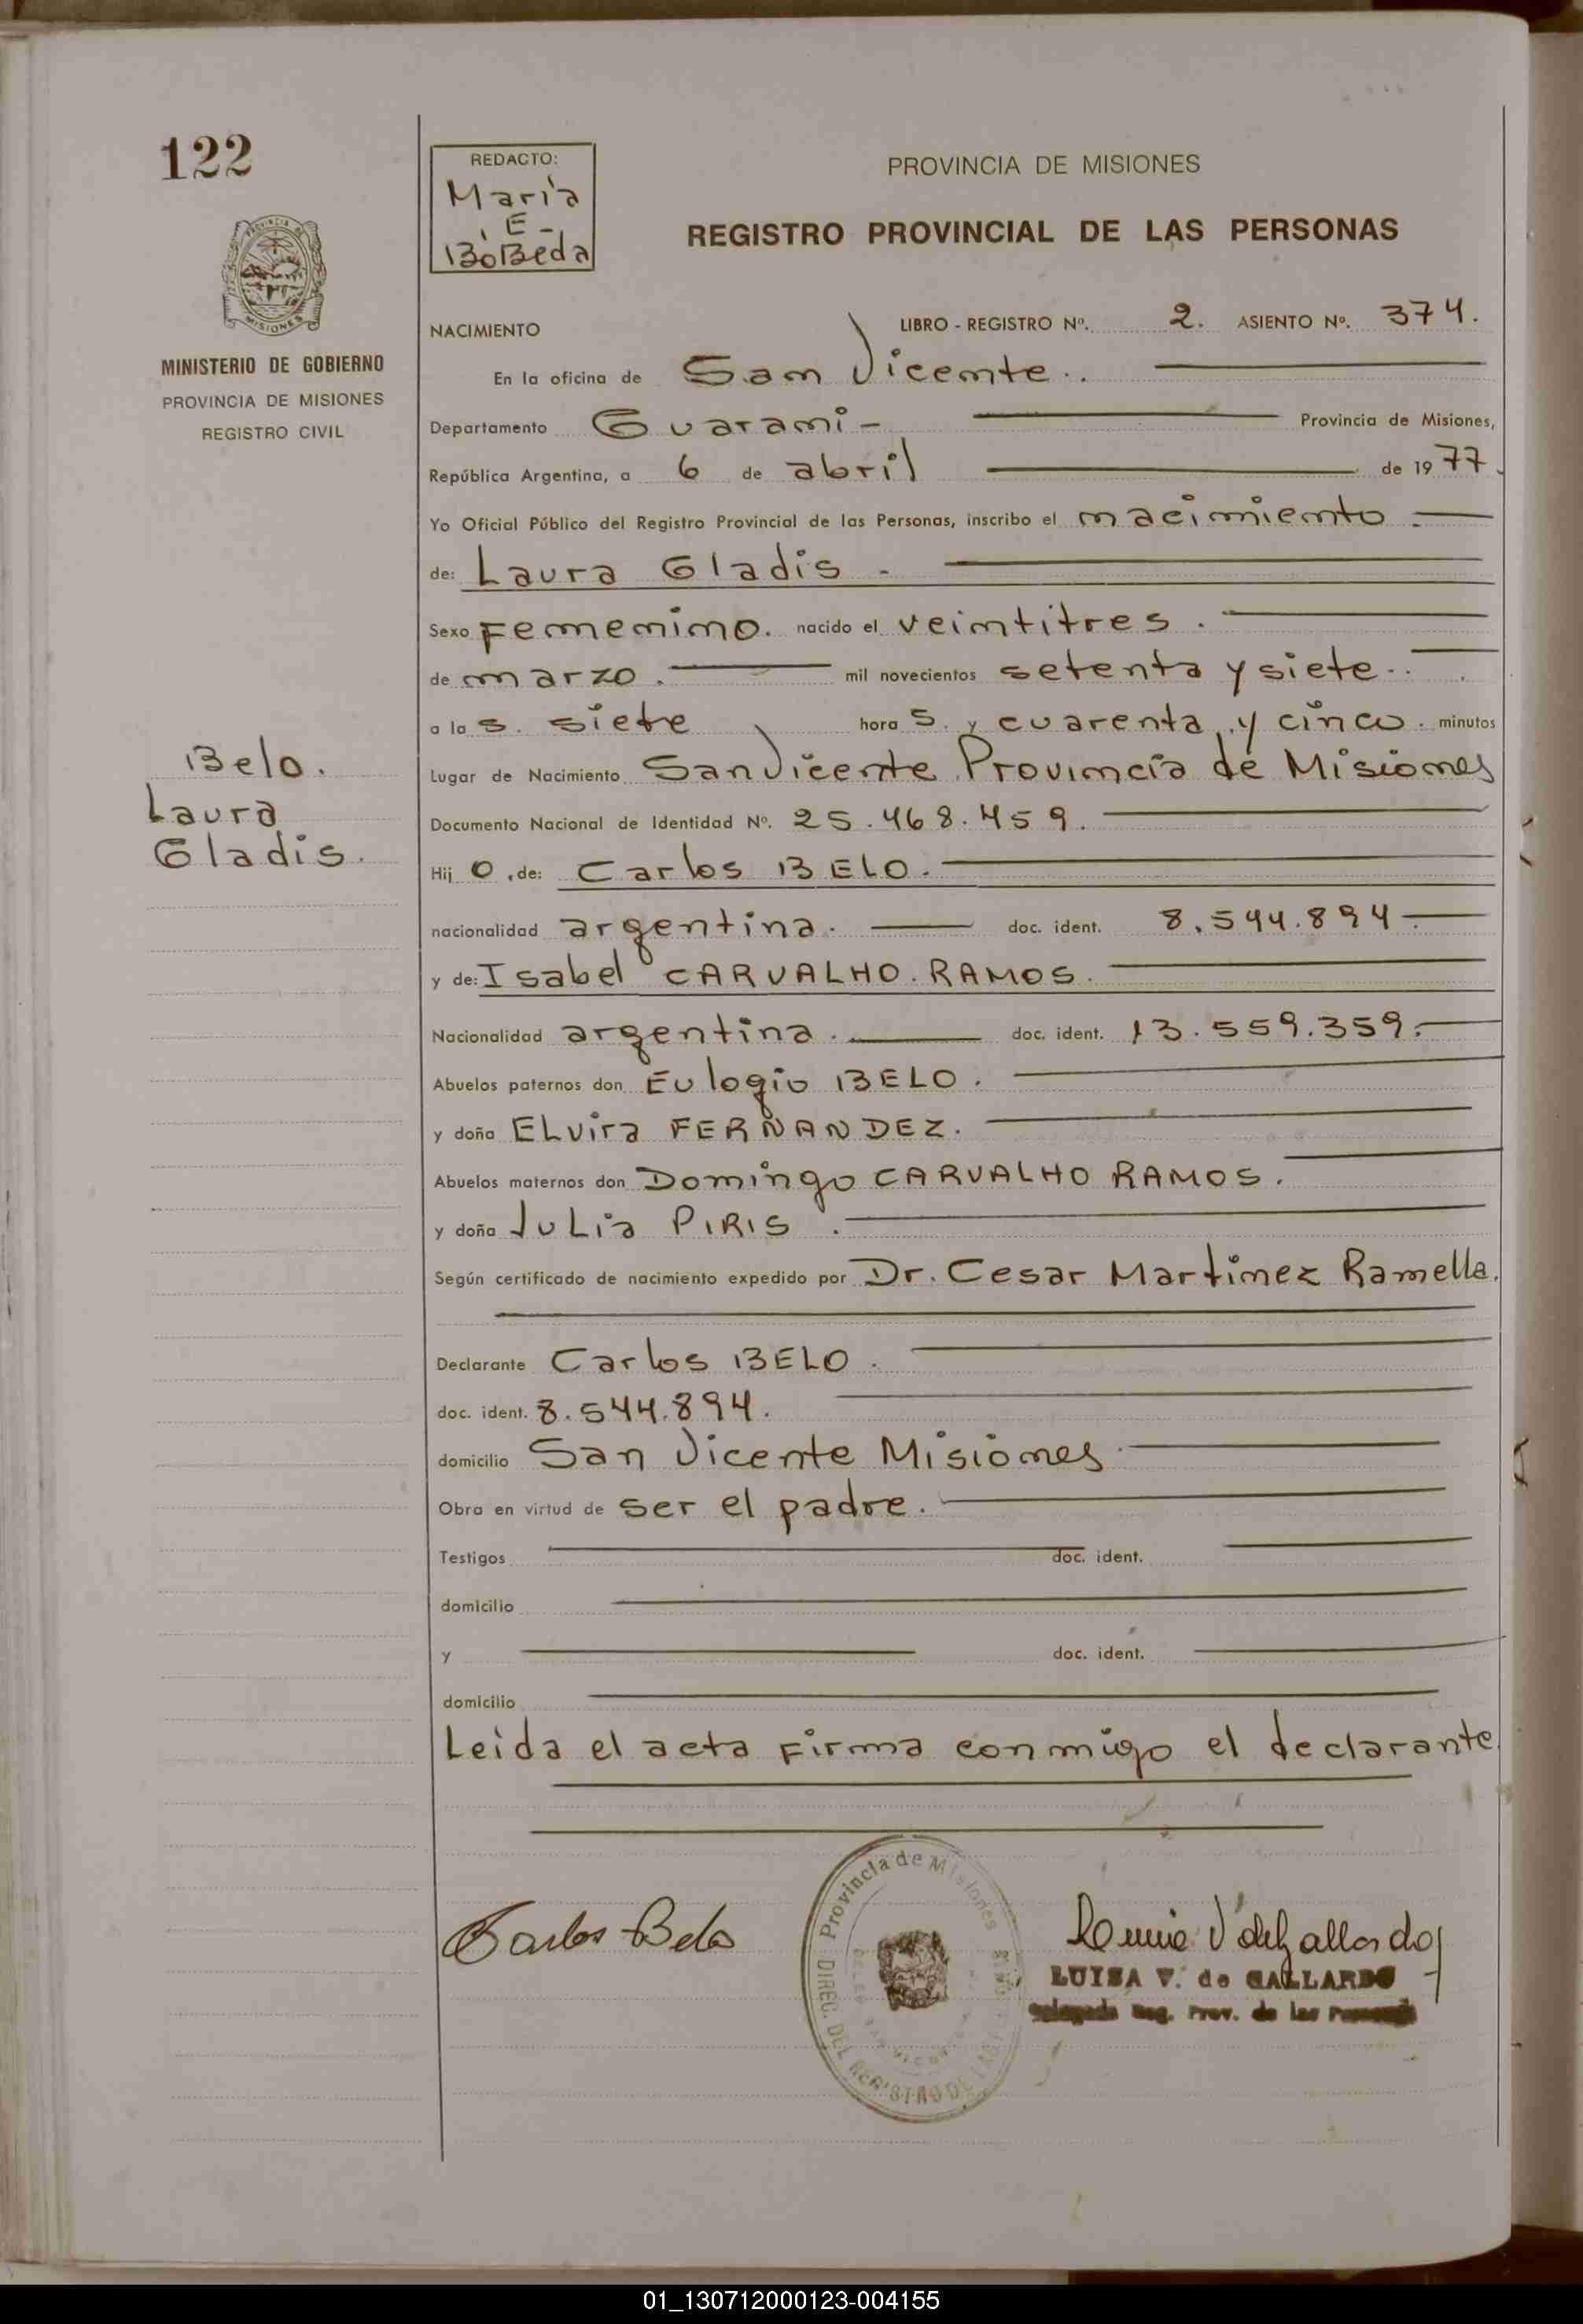 122
REDACTO:
Maria
E-
BoBeda
PROVINCIA DE MISIONES
REGISTRO PROVINCIAL DE LAS PERSONAS
MISIONES
MINISTERIO DE GOBIERNO
PROVINCIA DE MISIONES
REGISTRO CIVIL
NACIMIENTO LIBRO - REGISTRO Nº. 2. ASIENTO Nº. 374.
En la oficina de San Vicente.
Departamento Guarani - Provincia de Misiones,
República Argentina, a 6 de abril de 1977.
Yo Oficial Público del Registro Provincial de las Personas, inscribo el nacimiento.
de: Laura Gladis -
Sexo Femenino. nacido el veintitres.
de marzo. mil novecientos setenta y siete.
a las. siete horas. y cuarenta y cinco. minutos
Lugar de Nacimiento San Vicente Provincia de Misiones
Documento Nacional de Identidad Nº. 25.468.459.
Hijo, de: Carlos BELO.
nacionalidad argentina. doc. ident. 8.544.894.
y de: Isabel CARVALHO. RAMOS.
Nacionalidad argentina. doc. ident. 13.559.359.
Abuelos paternos don Eulogio BELO.
y doña ELvira FERNANDEZ.
Abuelos maternos don Domingo CARVALHO RAMOS.
y doña JuLia PIRIS.
Según certificado de nacimiento expedido por Dr. Cesar Martinez Ramella.
Declarante Carlos BELO.
doc. ident. 8.544.894.
domicilio San Vicente Misiones
Obra en virtud de ser el padre.
Testigos doc. ident.
domicilio
y doc. ident.
domicilio
Leida el acta firma conmigo el declarante.
Belo.
Laura
Gladis.
Carlos Belo
Provincia de Misiones
DIREC. DEL REGISTRO DE LAS
V. de Gallardo
LUISA V. de GALLARDO
Delegada Reg. Prov. de las Personas
01_130712000123-004155